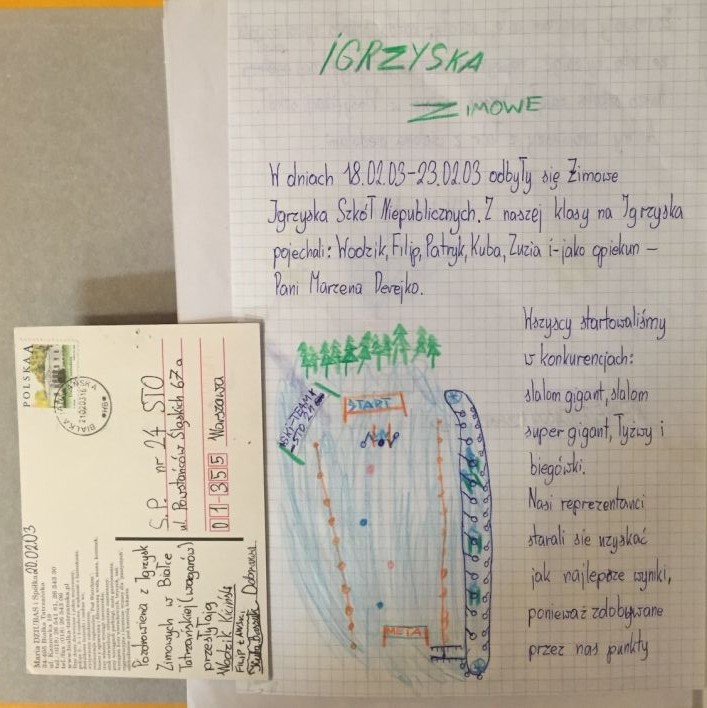 IGRZYSKA
ZIMOWE
W dniach 18.02.03-23.02.03 odbyły się Zimowe
Igrzyska Szkół Niepublicznych. Z naszej klasy na Igrzyska
pojechali: Wodzik, Filip, Patryk, Kuba, Zuzia i-jako opiekun -
Pani Marzena Derejko.
Wszyscy startowaliśmy
w konkurencjach:
slalom gigant, slalom
super gigant, łyżwy i
biegówki.
Nasi reprezentanci
starali sie uzyskać
jak najlepsze wyniki,
ponieważ zdobywane
przez nas punkty
START
META
POLSKA
BIAŁKA
20.02.03
S.P. nr 24 STO
ul. Powstańców Śląskich 67a
01-355 Warszawa
Pozdrowienia z Igrzysk
Zimowych w Białce
Tatrzańskiej (wagarów)
przesyłają
Maria DZIUBAS i Spółka